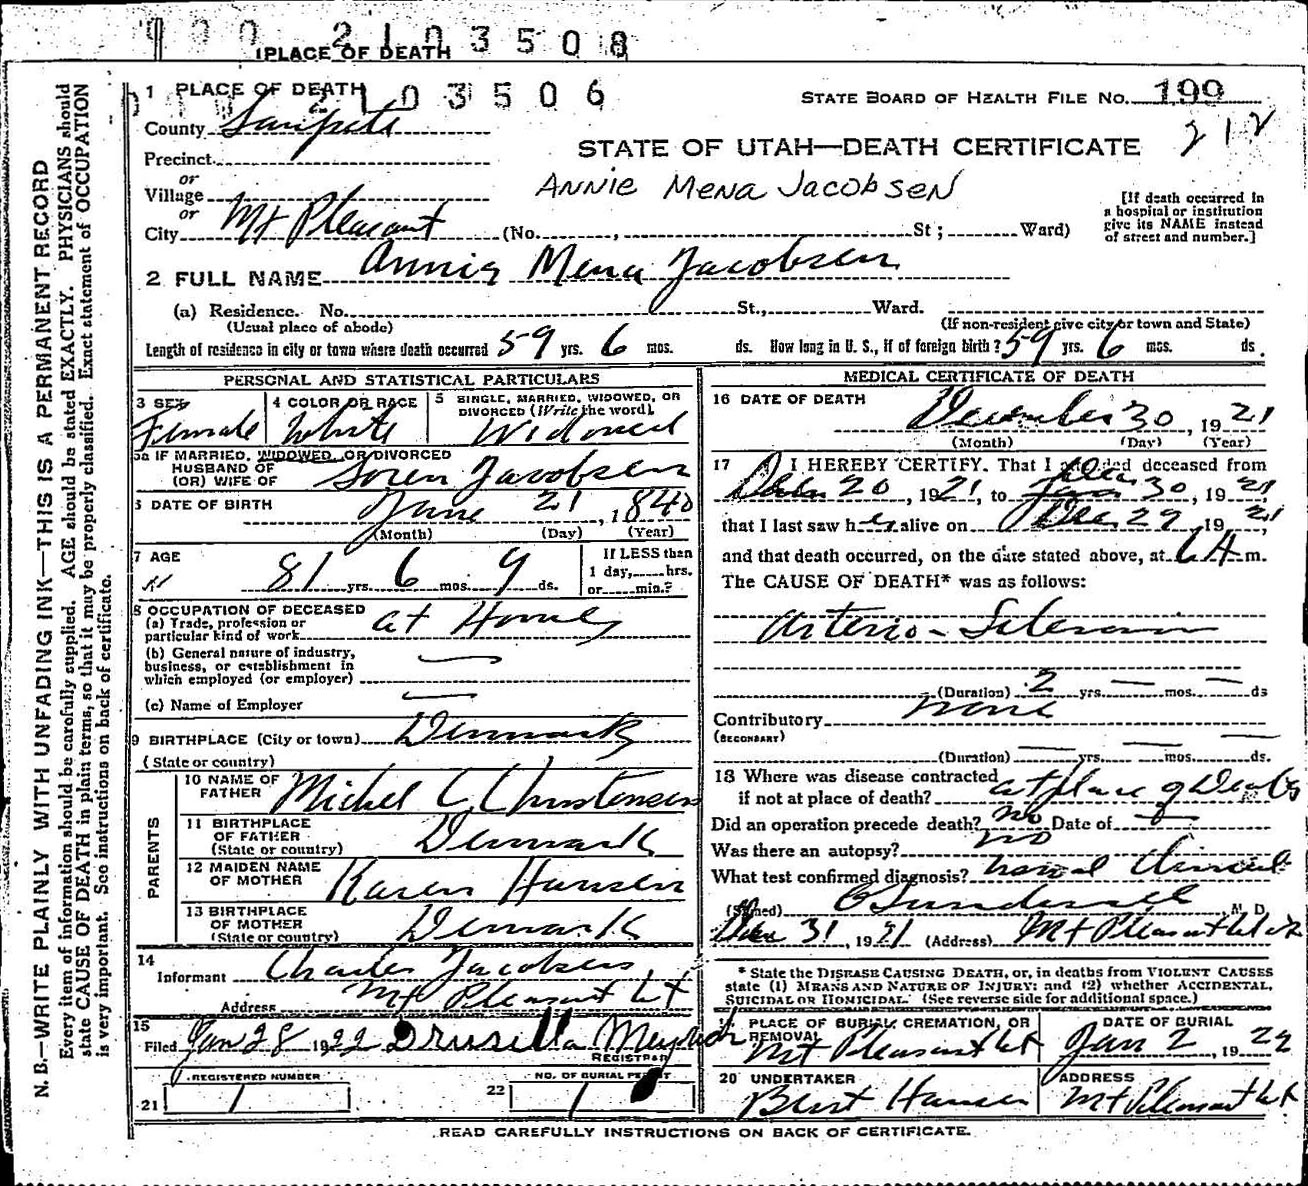 000 2103508
1 PLACE OF DEATH
1 PLACE OF DEATH
2103506
STATE BOARD OF HEALTH FILE NO. 199
212
County Sanpete
STATE OF UTAH—DEATH CERTIFICATE
Precinct
or
ANNIE MENA JACOBSEN
Village
or
City Mt Pleasant (No. , St; Ward)
[If death occurred in a hospital or institution give its NAME instead of street and number.]
2 FULL NAME Annie Mena Jacobsen
(a) Residence. No. St., Ward.
(Usual place of abode) (If non-resident give city or town and State)
Length of residence in city or town where death occurred 59 yrs. 6 mos. ds. How long in U. S., if of foreign birth? 59 yrs. 6 mos. ds.
PERSONAL AND STATISTICAL PARTICULARS
3 SEX
Female
4 COLOR OR RACE
White
5 SINGLE, MARRIED, WIDOWED, OR DIVORCED (Write the word)
Widowed
5a IF MARRIED, WIDOWED, OR DIVORCED
HUSBAND OF
(OR) WIFE OF Soren Jacobsen
6 DATE OF BIRTH
June 21, 1840
(Month) (Day) (Year)
7 AGE
81 yrs. 6 mos. 9 ds.
If LESS than
1 day, hrs.
or min.?
8 OCCUPATION OF DECEASED
(a) Trade, profession or
particular kind of work at Home
(b) General nature of industry,
business, or establishment in
which employed (or employer)
(c) Name of Employer
9 BIRTHPLACE (City or town) Denmark
(State or country)
PARENTS
10 NAME OF
FATHER Michel C Christensen
11 BIRTHPLACE
OF FATHER
(State or country) Denmark
12 MAIDEN NAME
OF MOTHER Karen Hansen
13 BIRTHPLACE
OF MOTHER
(State or country) Denmark
14
Informant Charles Jacobsen,
Address Mt Pleasant Ut
15
Filed Jan 28 1922 Drusilla
REGISTRAR
REGISTERED NUMBER
21 1
NO. OF BURIAL PERMIT
22 1
MEDICAL CERTIFICATE OF DEATH
16 DATE OF DEATH
December 30, 1921
(Month) (Day) (Year)
17 I HEREBY CERTIFY. That I attended deceased from
Dec 20, 1921, to Dec 30, 1921,
that I last saw her alive on Dec 29, 1921,
and that death occurred, on the date stated above, at 6 A m.
The CAUSE OF DEATH* was as follows:
Arterio-Sclerosis
(Duration) 2 yrs. — mos. — ds
Contributory none
(SECONDARY)
(Duration) — yrs. — mos. — ds.
18 Where was disease contracted
if not at place of death? at place of Death
Did an operation precede death? no Date of —
Was there an autopsy? no
What test confirmed diagnosis? Clinical
(Signed) M. D.
Dec 31, 1921 (Address) Mt Pleasant Utah
* State the DISEASE CAUSING DEATH, or, in deaths from VIOLENT CAUSES
state (1) MEANS AND NATURE OF INJURY; and (2) whether ACCIDENTAL,
SUICIDAL OR HOMICIDAL. (See reverse side for additional space.)
19 PLACE OF BURIAL, CREMATION, OR
REMOVAL
Mt Pleasant Ut
DATE OF BURIAL
Jan 2, 1922
20 UNDERTAKER
Hansen
ADDRESS
Mt Pleasant Ut
READ CAREFULLY INSTRUCTIONS ON BACK OF CERTIFICATE.
N. B.—WRITE PLAINLY WITH UNFADING INK—THIS IS A PERMANENT RECORD
Every item of information should be carefully supplied. AGE should be stated EXACTLY. PHYSICIANS should
state CAUSE OF DEATH in plain terms, so that it may be properly classified. Exact statement of OCCUPATION
is very important. See instructions on back of certificate.